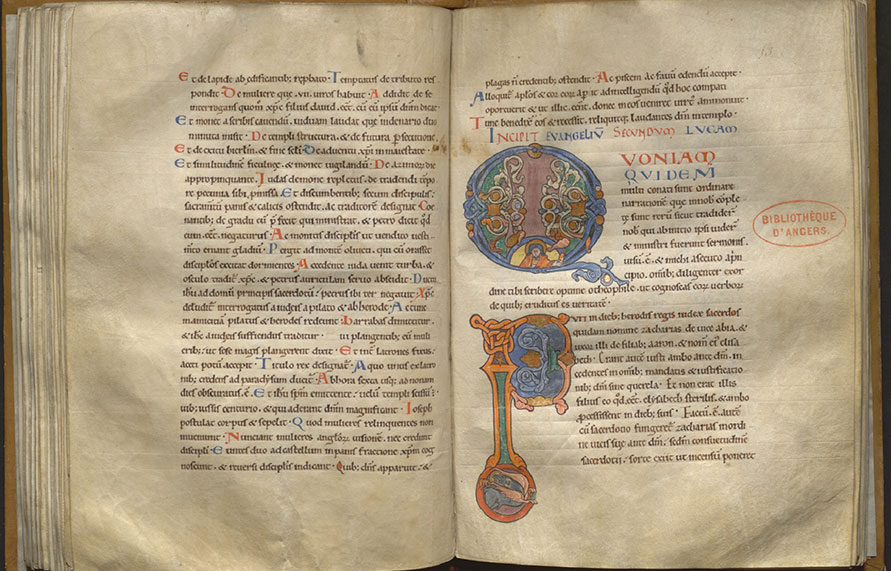 Et de lapide ab edificantib; rephato. Temptatus de tributo res
pondit. De muliere que .vii. viros habuit. Addidit de se
interrogans quom̄ xp̄c filius david .ēēt. cū eū ipsū dn̄m dicat.
Et monet a scribis cavendū. viduam laudat que in denario duo
minuta misit. De templi structura. & de futura p̄secutione.
Et de exitu hierlm̄. & fine sc̄li. De adventu xp̄i in maiestate.
Et similitudinē ficulnee. & monet vigilandū. De azimor̄ die
appropinquante. Iudas demone repletus. de tradendi tēpo
re pecunia sibi p̄missa. Et discumbentib; secum discipulis.
sacramtū panis & calicis ostendit. ac traditorē designat. Coe
nantib; de gradu eū p̄fecit qui ministrat. & petro dicit qd̄
eum .ēēt. negaturus. Ac monitis discipulis ut vendito vesti
m̄to emant gladiū. Pergit ad montē oliveti. qui cū orasset
discipłos excitat dormientes. Accedente iuda venit turba. &
osculo tradit̄ xp̄c. & petrus auriculam servo abscidit. Duct
ibi ad domū principis sacerdotū. petrus ibi ter negavit. Xp̄c
deludit̄. interrogatus a iudeis a pilato & ab herode. Ac cum
manicutia pilatus & herodes redeunt. Barrabas dimittitur.
& ih̄c a iudeis suffiendus traditur. in plangentib; eū muli
erib;. ut sese magis plangerent dixit. Et int̄ latrones fixus.
aceti potū accepit. Titulo rex designat̄. A quo unus ex latro
nib; credens ad paradysum ducit̄. Ab hora sexta usq; ad nonam
dies obscuratus .ē. Et ih̄u spm̄ emittente. velū templi scissū.
vib; iussus centurio. & qui aderant dn̄m magnificant. Ioseph
postulat corpus & sepelit. Quod mulieres relinquentes non
invenunt. Nunciant mulieres anglor̄ visionē. nec credunt
discipłi. Euntes duo ad castellum in panis fractione xp̄m cog
noscunt. & reversi discipłis indicant. Quib; dn̄s apparuit. &
plagas n̄ credentib; ostendit. Ac piscem ac favū edendū accepit.
Alloquit̄ apłos & cor eor̄ ap̄it ad intelligendū qd̄ hoc compati
oportuerit & ut illic .ēēnt. donec meos venirēt virtrē ammonuit.
Tunc benedixit eos & recessit. relinquens laudantes dn̄m in templo.
INCIPIT EVANGELIŪ SECUNDUM LUCAM
QUONIAM
QUIDEM
multi conati sunt ordinare
narrationē que in nob̄ cōple
te sunt rerū sicut tradider̄
nob̄ qui ab initio ipsi viderūt
& ministri fuerunt sermonis.
visū .ē. & michi assecuto a prin
cipio. omīb; diligenter ex or
dine tibi scribere optime otheophile. ut cognoscas eor̄ verbor̄
de quib; eruditus es veritatē.
Fuit in dieb; herodis regis iudeæ sacerdos
quidam nomine zacharias de vice abia. &
uxor illi de filiab; aaron. & nom̄ ei̅ elisa
beth. Erant aut̄e iusti ambo ante dm̄. in
cedentes in omīb; mandatis & iustificatio
nib; dn̄i sine querela. Et non erat illis
filius eo qd̄ .ēēt. elysabeth sterilis. & ambo
p̄cessissent in dieb; suis. Factū .ē. aut̄e
cū sacerdotio fungeret̄ zacharias in ordi
ne vicis sue ante dm̄. scdm̄ consuetudinē
sacerdotii. sorte exiit ut incensū poneret
BIBLIOTHÈQUE
D'ANGERS.